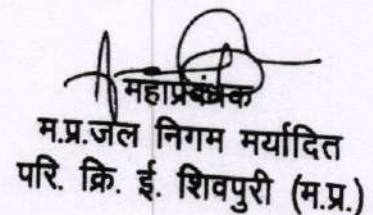 महाप्रबंधक
म.प्र.जल निगम मर्यादित
परि. क्रि. ई. शिवपुरी (म.प्र.)